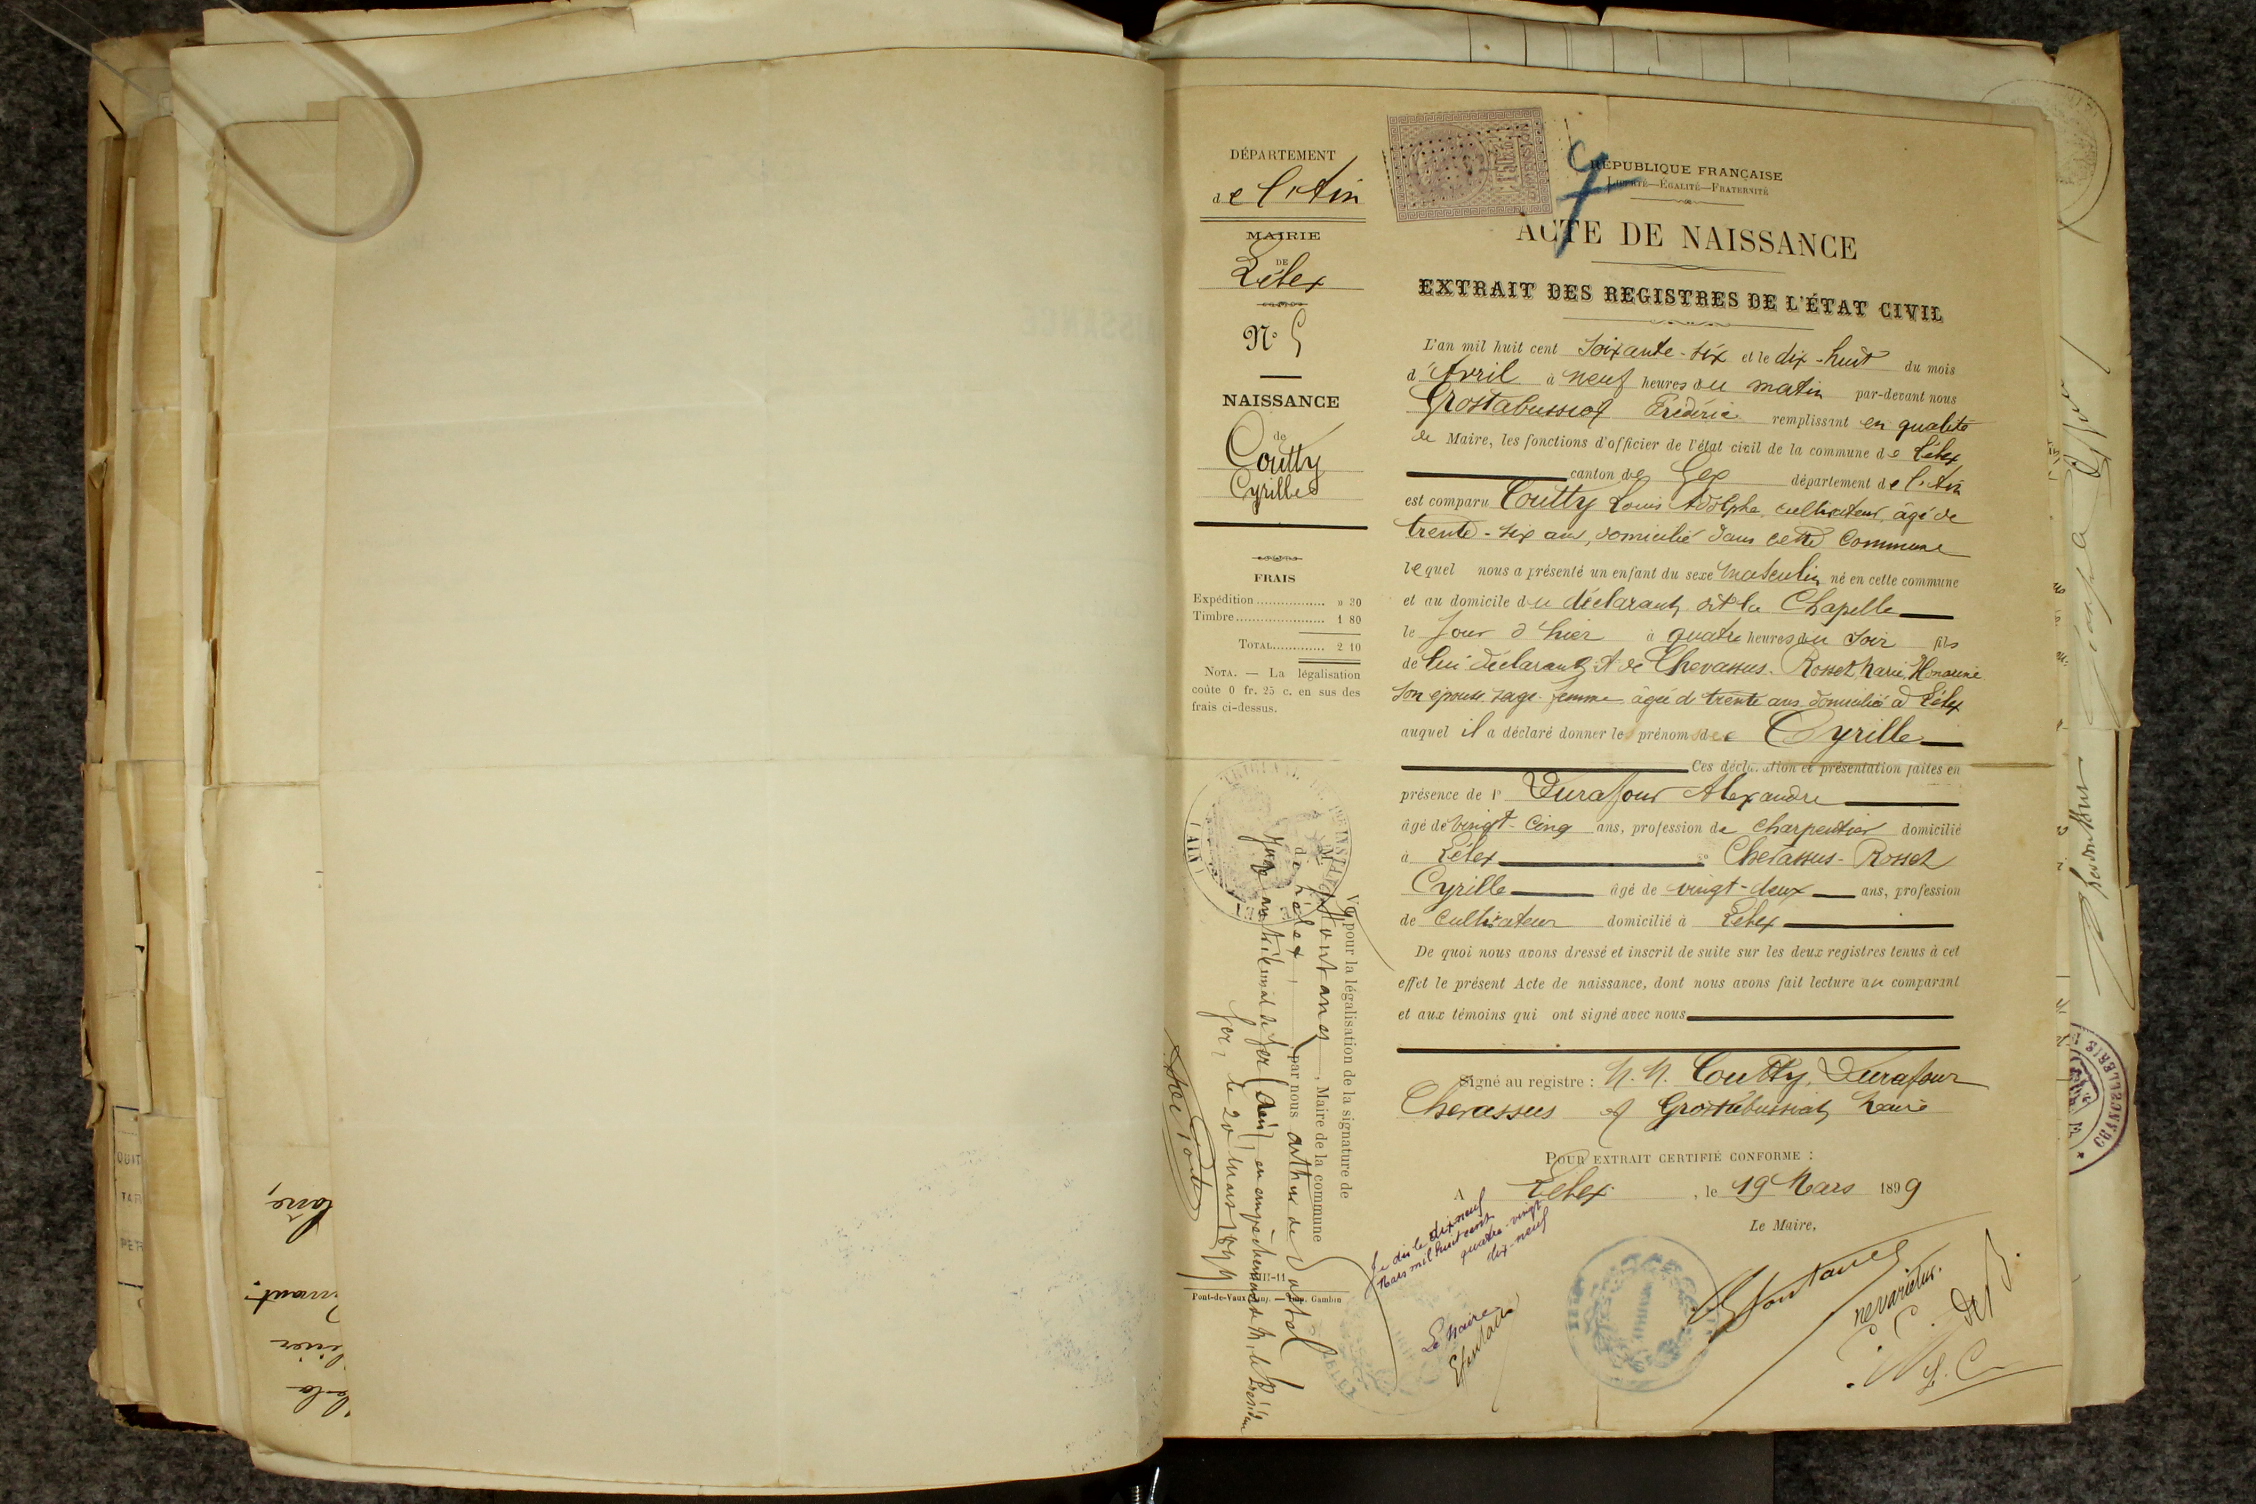 DÉPARTEMENT
de l'Ain
MAIRIE
DE
Lélex
N° 5
NAISSANCE
de
Coutty
Cyrille
FRAIS
Expédition ................. » 30
Timbre ....................... 1 80
TOTAL............. 2 10
NOTA. — La légalisation
coûte 0 fr. 25 c. en sus des
frais ci-dessus.
RÉPUBLIQUE FRANÇAISE
LIBERTÉ—ÉGALITÉ—FRATERNITÉ
ACTE DE NAISSANCE
EXTRAIT DES REGISTRES DE L'ÉTAT CIVIL
L'an mil huit cent soixante-six et le dix-huit du mois
d'Avril à neuf heures du matin par-devant nous
Grostabussiat Frédéric remplissant en qualité
de Maire, les fonctions d'officier de l'état civil de la commune de Lélex
canton de Gex département de l'Ain
est comparu Coutty Louis Adolphe, cultivateur, âgé de
trente-six ans, domicilié dans cette Commune
lequel nous a présenté un enfant du sexe masculin né en cette commune
et au domicile du déclarant, dit la Chapelle
le jour d'hier à quatre heures du soir fils
de lui déclarant, et de Chevassus-Rosset, Marie, Honorine
son épouse sage-femme âgée de trente ans domicilié à Lélex
auquel il a déclaré donner le prénom de Cyrille
Ces déclaration et présentation faites en
présence de 1° Durafour Alexandre
âgé de vingt-cinq ans, profession de charpentier domicilié
à Lélex 2° Chevassus-Rosset
Cyrille âgé de vingt-deux ans, profession
de cultivateur domicilié à Lélex
De quoi nous avons dressé et inscrit de suite sur les deux registres tenus à cet
effet le présent Acte de naissance, dont nous avons fait lecture au comparant
et aux témoins qui ont signé avec nous
Signé au registre : M. M. Coutty, Durafour
Chevassus et Grostabussiat, Maire
POUR EXTRAIT CERTIFIÉ CONFORME :
A Lélex, le 19 Mars 1899
Le Maire,
Je dis le dix neuf
Mars mil huit cent
quatre-vingt
dix-neuf
Le Maire
ne varietur.
Vu pour la légalisation de la signature de
M. , Maire de la commune
de Lélex, par nous
juge au tribunal de Gex (Ain) en empêchement de M. le Président
Gex, le 20 Mars 1899
III-11
Pont-de-Vaux — Imp. Gambin
MAIRIE
LELEX
(AIN)